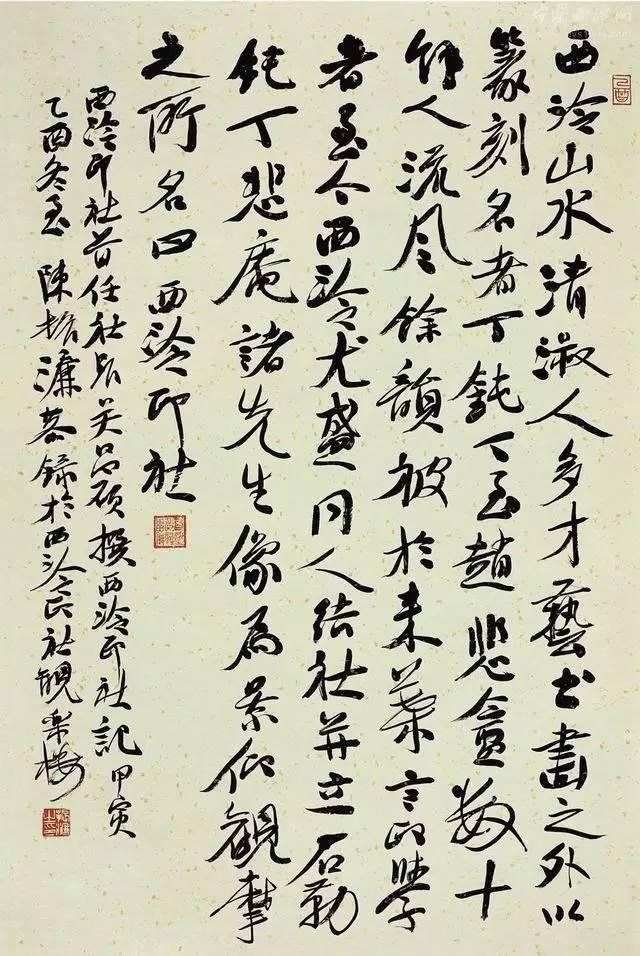 乙酉
西泠山水清淑人多才藝書畫之外以
篆刻名者丁鈍丁至趙悲盦數十
人流風餘韻被於来葉言印學
者至今西泠尤盛同人結社並立石勒
鈍丁悲庵諸先生像為景仰觀摩
之所名曰西泠印社
西泠印社首任社長吴昌碩撰西泠印社記甲寅
乙酉冬至陳振濂恭録於西泠印社觀樂樓